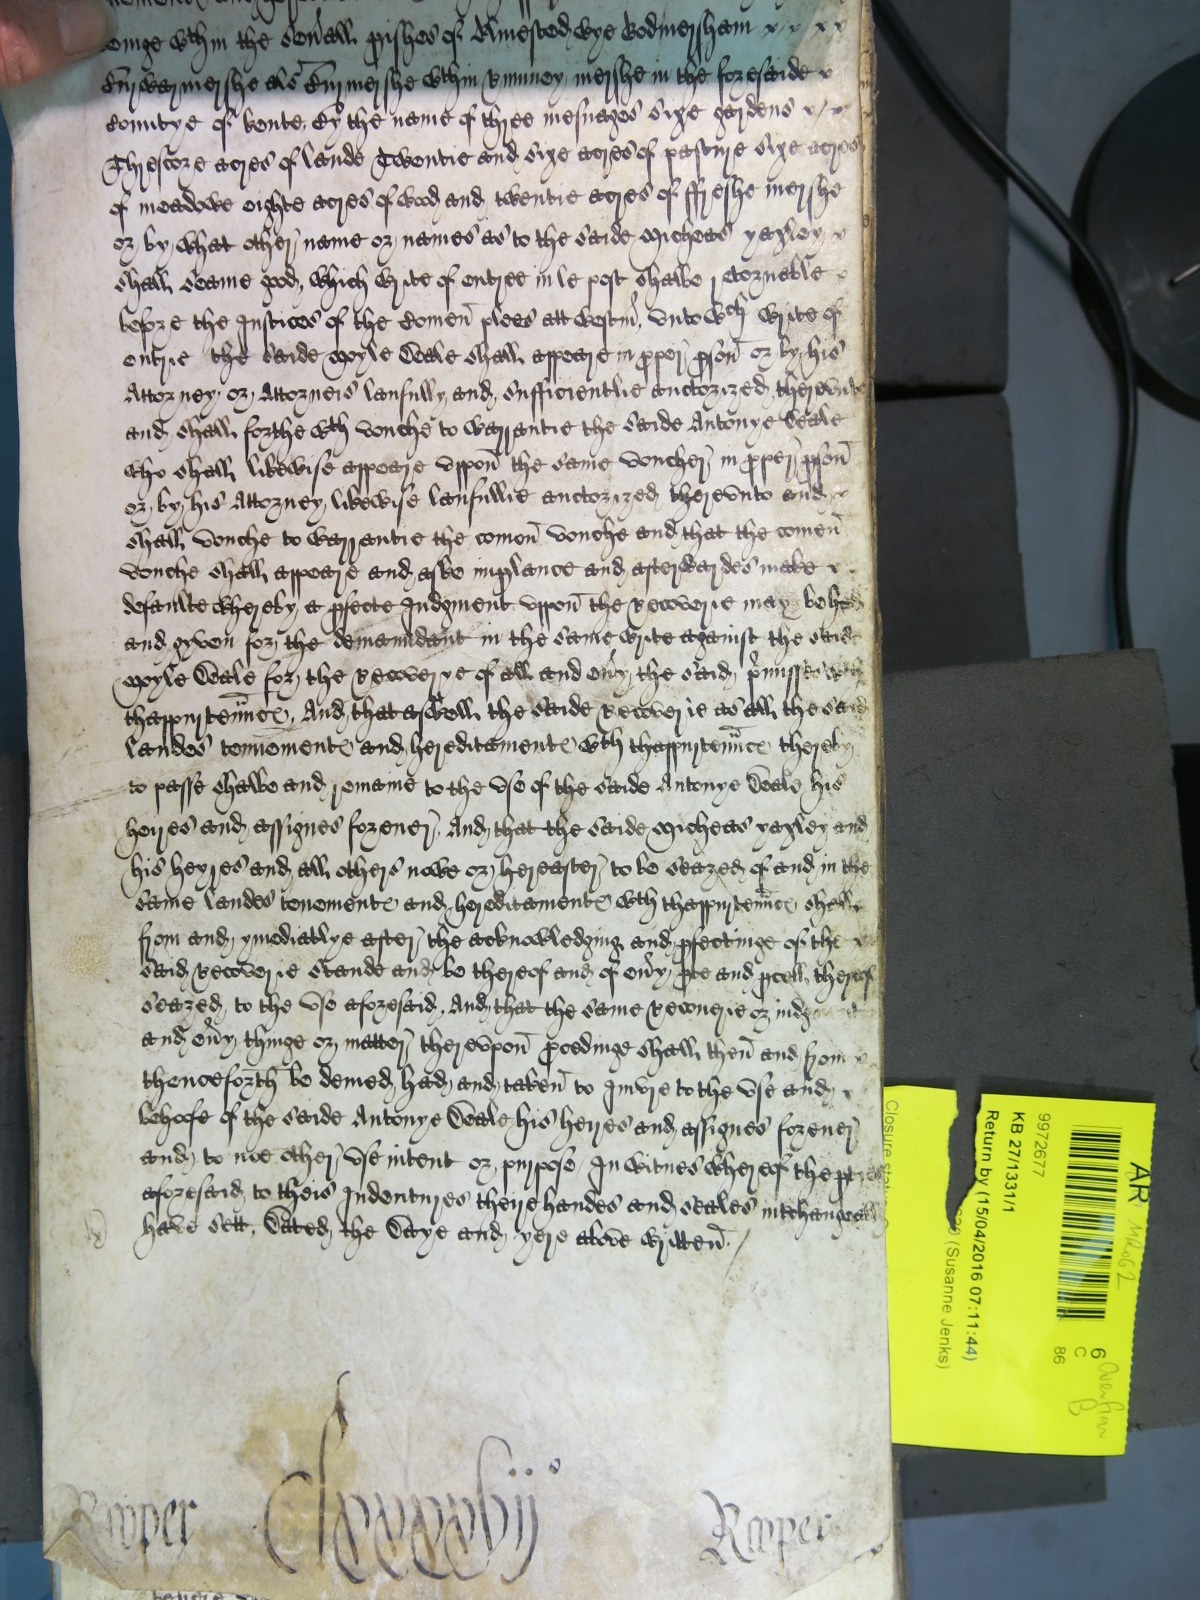 beinge wthin the sev'all pishes of Elmested, wye Godmersham x x x x
the name of three mesuages sixe gardens x x
Comitye of Kente, By the name of three mesuages sixe gardens x x
Threscore acres of lande Twentie and sixe acres of pasture sixe acres
of meadowe eighte acres of wood and twentie acres of ffreshe mershe
or by what other name or names as to the saide Micheas yaxley x
shall seame good, which write of entree in le post shalbe retornable x
before the Justices of the Comen plees att westm', vnto wch write of
entrie the saide Moyle Deale shall appeare in pper pson or by his
Attorney or Attorneis lanfully and sufficientlie auctorized therevnto
and shall forthe wth vouche to warrantie the saide Antonye Deale
who shall likewise appeare vppon the same voucher in pper pson
or by his Attorney likewise lanfullie auctorized therevnto and x
shall vouche to warrantie the comon vouche and that the comen
vouche shall appeare and aske implance and afterwardes make x
defaulte whereby a pfecte Judgment vppon the Recoverie may be had
and gyven for the demaundant in the same write against the saide
Moyle Deale for the Recoverye of all and ev'y the said p'misses wth
thappurtennce, And that aswell the saide Recoverie as all the said
landes tenemente and hereditamente wth thappurtennce thereby
to passe shalbe and remaine to the vse of the saide Antonye Deale his
heyres and assignes forever, And that the saide Micheas yaxley and
his heyres and all others nowe or hereafter to be seazed of and in the
same landes tenemente and hereditamente wth thappurtennce shall x
from and ymediatlye after the acknowledging and pfectinge of the x
said Recoverie stande and be thereof and of ev'y pte and pcell therof
seazed to the vse aforesaid, And that the same Recouerie or
and ev'y thinge or matter therevpon pcedinge shall then and from x
thenceforth be demed had and taken to Inure to the vse and x
behoofe of the saide Antonye Deale his heyres and assignes forever
and to noe other vse intent or purpose. In witnes whereof the pties
aforesaid to theis Indentures theire handes and seales
have sett. Dated the Daye and yere above written./
Rooper clxxxxvijo Rooper
AR
6
C
86
9972677
KB 27/1331/1
Return by (15/04/2016 07:11:44)
(Susanne Jenks)
Closure status